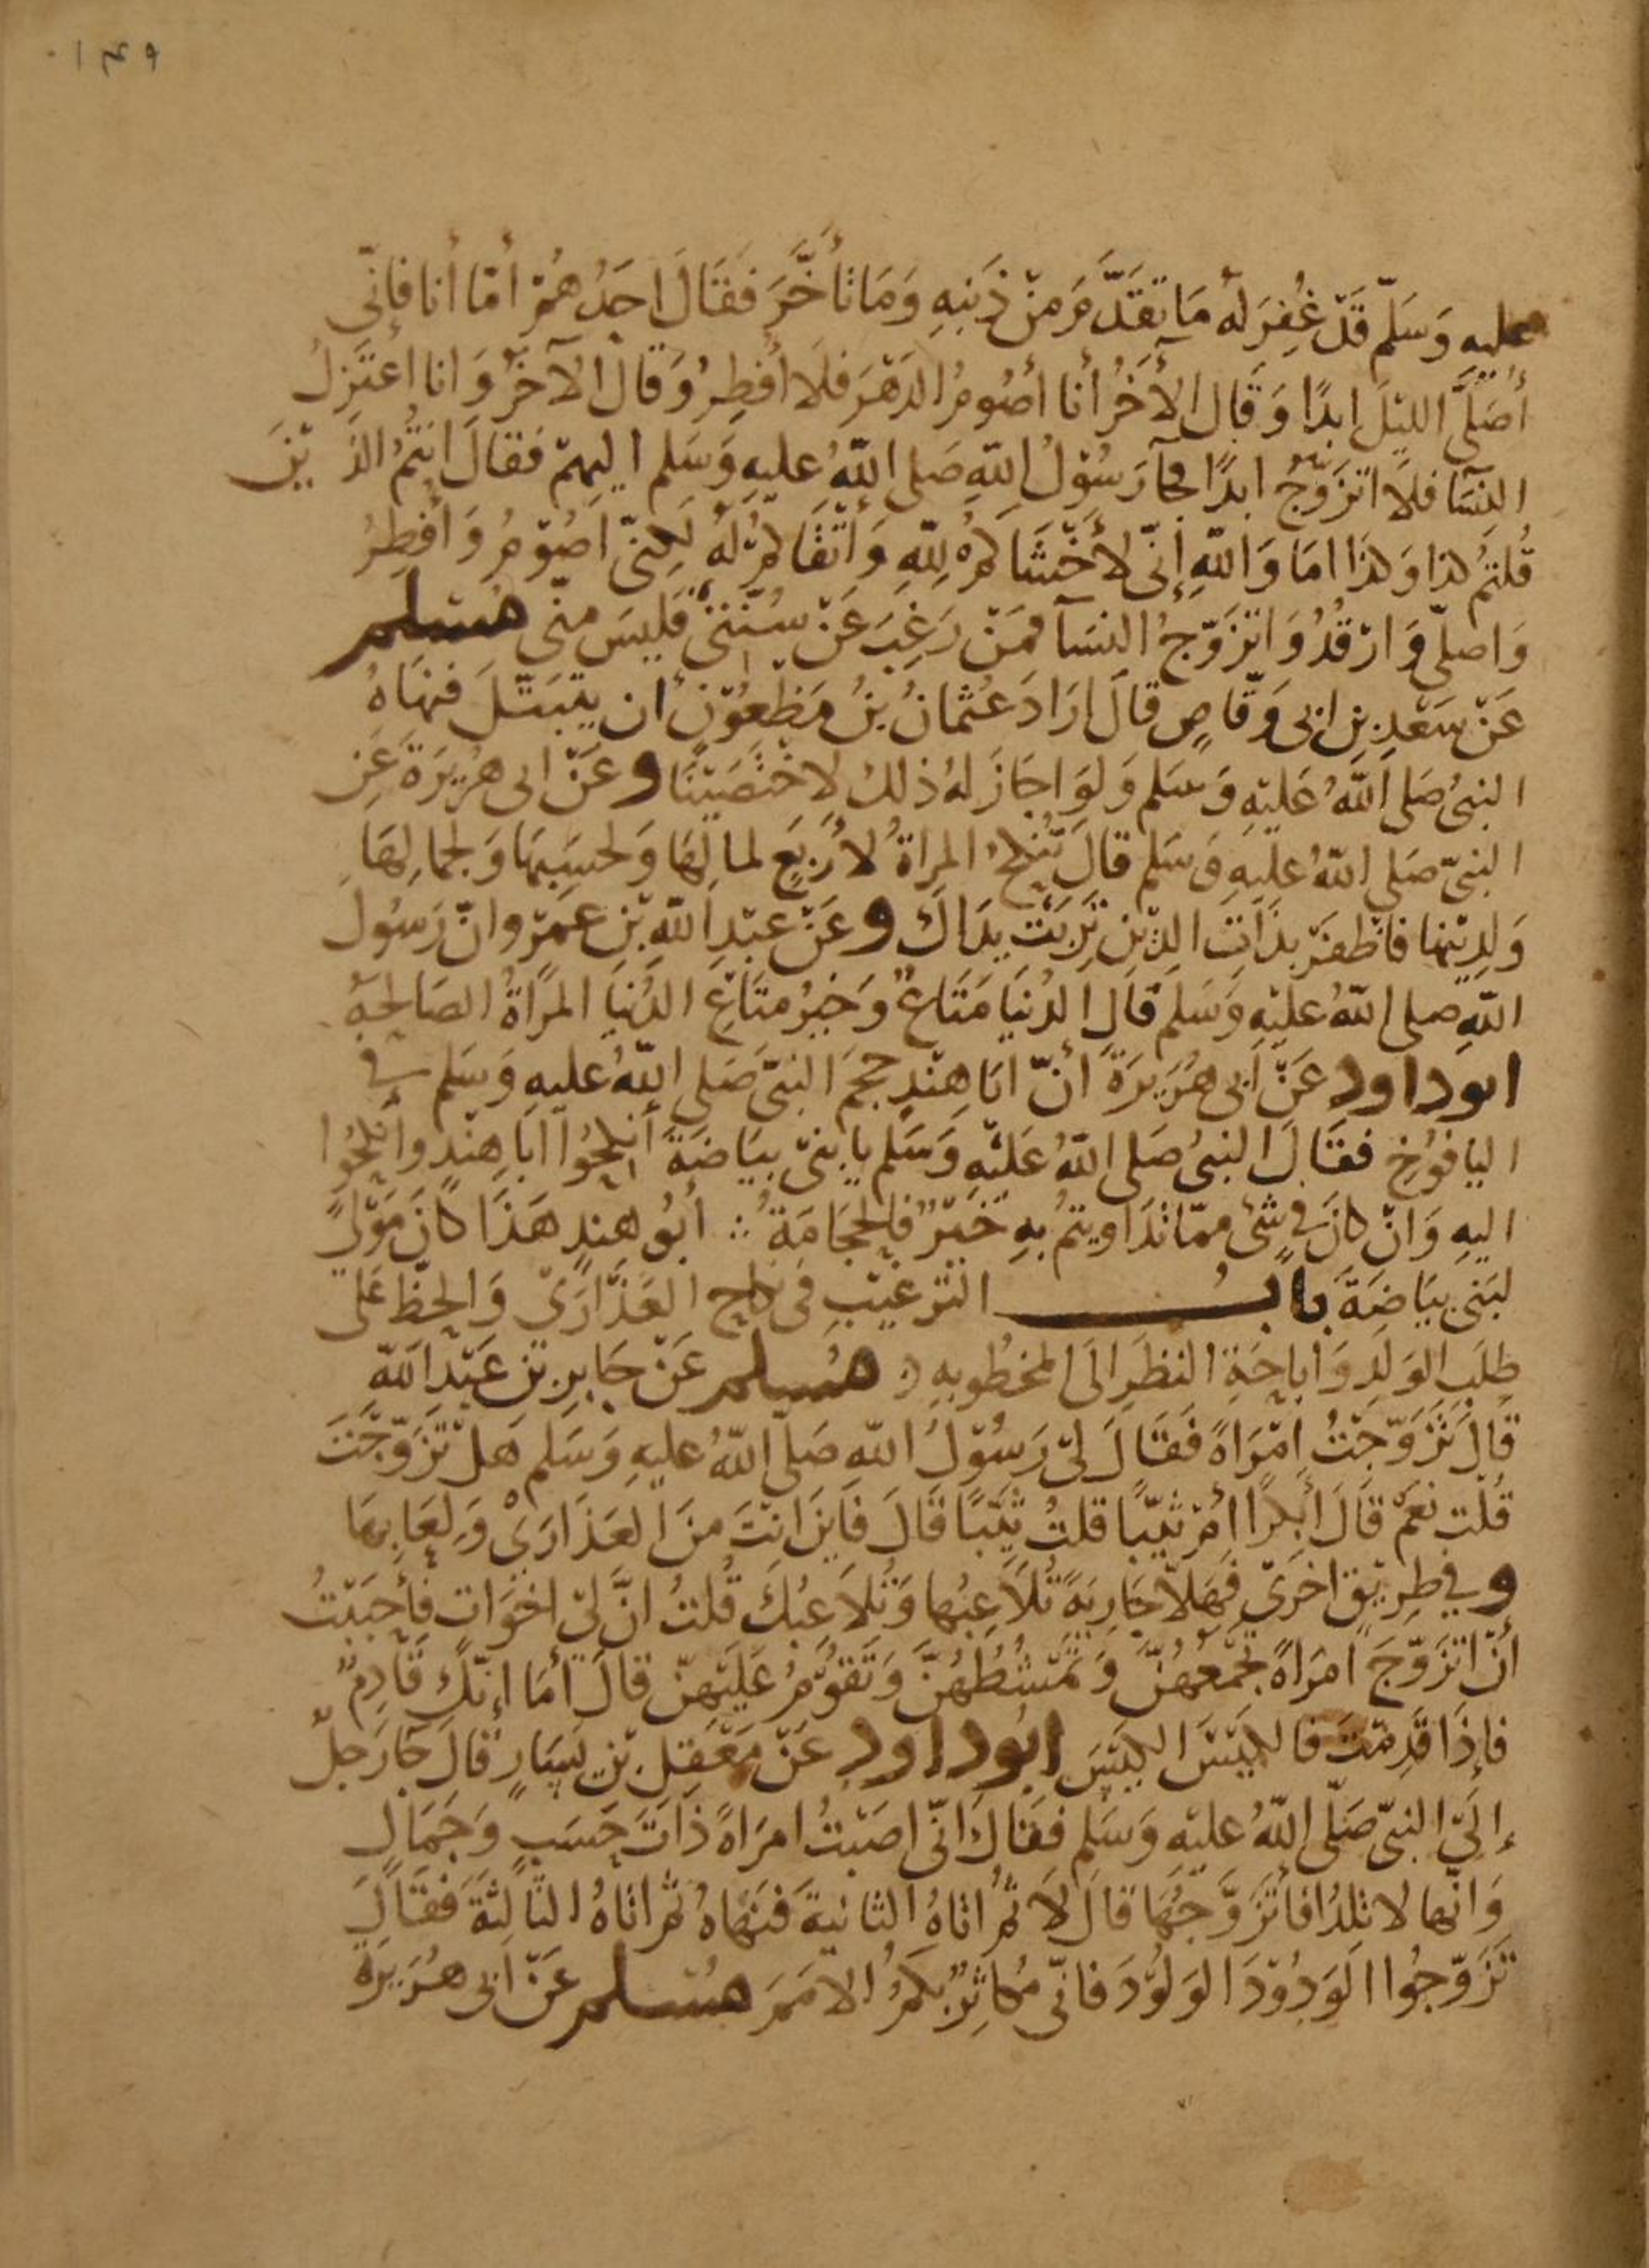 ١٤٩
عليه وَسَلّم قَدْ غُفِرَ لَهُ مَا تَقَدَّمَ مِنْ ذَنبِهِ وَمَا تأَخَّرَ فَقَالَ احَدُهُمْ أمّا أنا فإنّى
أُصَلّى الليْلَ ابدًا وَقَالَ الأخَرُ أنا أصُومُ الدَهْرَ فلَا أفطِرُ وَقالَ الآخَرُ وَانا اعْتَزِلُ
النِسَآ فلَا اتزَوّجُ ابدًا فجآ رَسُوْلُ اللّهِ صَلى اللّهُ عليهِ وَسَلم اليهمْ فقالَ انتُمُ الذيْنَ
قُلتمُ كذا وَكذا امَا وَاللّهِ إنّى لأخْشَاكمُ لِلّهِ وَأتْقَاكمْ لَهُ لَكِنّى اصُوْمُ وَأفطِرُ
وَاصلّى وَارْقُدُ وَاتزَوّجُ النسَآ فمَنْ رَغِبَ عَنْ سُنّتى فَليسَ منّى مسلم
عَنْ سَعْدِ بنِ ابى وَقّاصٍ قالَ ارَادَ عُثمَانُ بنُ مَظْعُوْنٍ ان يتَبَتّلَ فنهَاهُ
النبىُ صَلى اللّهُ عَليْهِ وَسَلم وَلوَ اجَازَ لهُ ذلكَ لاخْتَصَيْنَا وعَنْ ابى هُرَيرَةَ عَنِ
النبىّ صَلى اللّهُ عليهِ وَسَلم قالَ تُنكحُ المراةُ لأرْبَعٍ لمالِهَا وَلحسَبِهَا وَلجمالِهَا
وَلدِيْنها فاظفرْ بذَاتِ الدّيْنِ تَرِبَتْ يدَاكَ وعَنْ عبْدِ اللّهِ بْنِ عمرو انّ رَسُولَ
اللّهِ صلى اللّهُ عليْهِ وَسَلمَ قالَ الدُنيَا مَتَاعٌ وَخيْرُ متَاعِ الدُنيَا المرْاةُ الصَالحةُ
ابوداود عَنْ ابى هُرَيرَةَ أنّ ابَا هنْدٍ حجمَ النبىّ صَلى اللّهُ عليهِ وَسَلم في
اليافُوْخِ فقالَ النبىُ صَلى اللّهُ عَليْهِ وَسَلم يا بنىّ بيَاضَةَ أنكحُوا ابا هنْدٍ وانكحُوا
اليهِ وَانْ كانَ في شىءٍ ممّا تدَاويتمُ بهِ خيْرٌ فالحجَامَةُ أبُو هندٍ هَذَا كانَ مَوْلىً
لبَنى بيَاضَةَ بابُ الترغيْبِ فى نكاحِ العَذَارَى وَالحضّ عَلى
طلبِ الوَلَدِ وَاباحَةِ النظرِ الى المخطُوبةِ مسلم عَنْ جَابِرِ بنِ عَبْدِ اللّه
قَالَ تزَوّجْتُ امْرَاةً فَقَالَ لىْ رَسُوْلُ اللّهِ صَلّى اللّهُ عليهِ وَسَلم هَلْ تَزَوّجْتَ
قُلْت نعَمْ قالَ أبِكرًا امْ ثيّبًا قلتُ ثيّبًا قَالَ فاينَ انتَ منَ العَذارَى وَلِعَابِهَا
وفي طرِيْقٍ اخرَى فهَلّا جَارِيَةً تُلَاعِبُها وَتُلاَعبُكَ قُلتُ انّ لىْ اخوَاتٍ فأحبَبْتُ
أنْ اتزَوّجَ امرَاةً تجْمَعُهُنّ وَتمْشُطُهُنَّ وَتقوْمُ عَليْهنّ قالَ أمَا إنّكَ قَادِمٌ
فإذَا قَدِمْتَ فالكيْسَ الكيْسَ ابوداود عَنْ مَعْقِلِ بْنِ يَسَارٍ قالَ جآ رَجلٌ
إلَى النبىّ صَلّى اللّهُ عليْهِ وَسَلم فقالَ انّى اصَبْتُ امرَاةً ذَاتَ حَسَبٍ وَجَمَالٍ
وَانّها لا تلدُ افاتزَوَّجُهَا قالَ لَا ثمُ اتاهُ الثانيَةَ فنَهَاهُ ثمُ اتاهُ الثالِثَةَ فقالَ
تزَوّجُوا الوَدُوْدَ الوَلُوْدَ فانّى مُكاثِرٌ بكمُ الأممَ مسلم عَنْ ابى هُرَيرَةَ